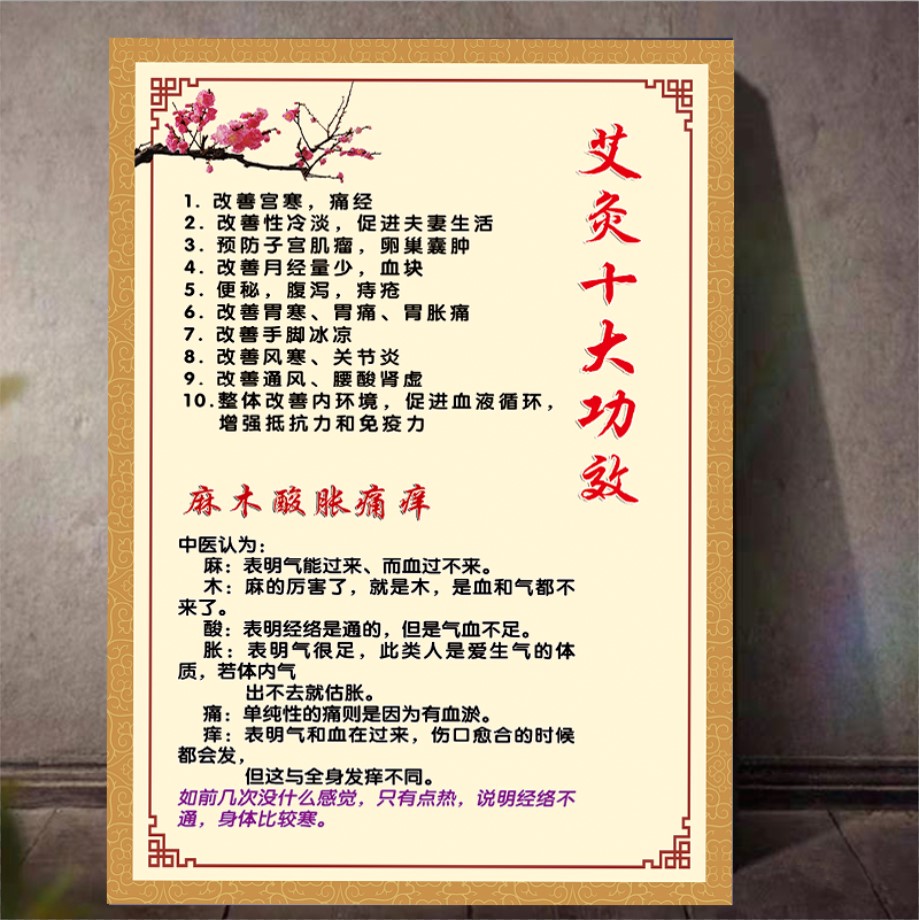 艾灸十大功效
1. 改善宫寒，痛经
2. 改善性冷淡，促进夫妻生活
3. 预防子宫肌瘤，卵巢囊肿
4. 改善月经量少，血块
5. 便秘，腹泻，痔疮
6. 改善胃寒、胃痛、胃胀痛
7. 改善手脚冰凉
8. 改善风寒、关节炎
9. 改善通风、腰酸肾虚
10.整体改善内环境，促进血液循环，
增强抵抗力和免疫力
麻木酸胀痛痒
中医认为：
麻：表明气能过来、而血过不来。
木：麻的厉害了，就是木，是血和气都不
来了。
酸：表明经络是通的，但是气血不足。
胀：表明气很足，此类人是爱生气的体
质，若体内气
出不去就估胀。
痛：单纯性的痛则是因为有血淤。
痒：表明气和血在过来，伤口愈合的时候
都会发，
但这与全身发痒不同。
如前几次没什么感觉，只有点热，说明经络不
通，身体比较寒。